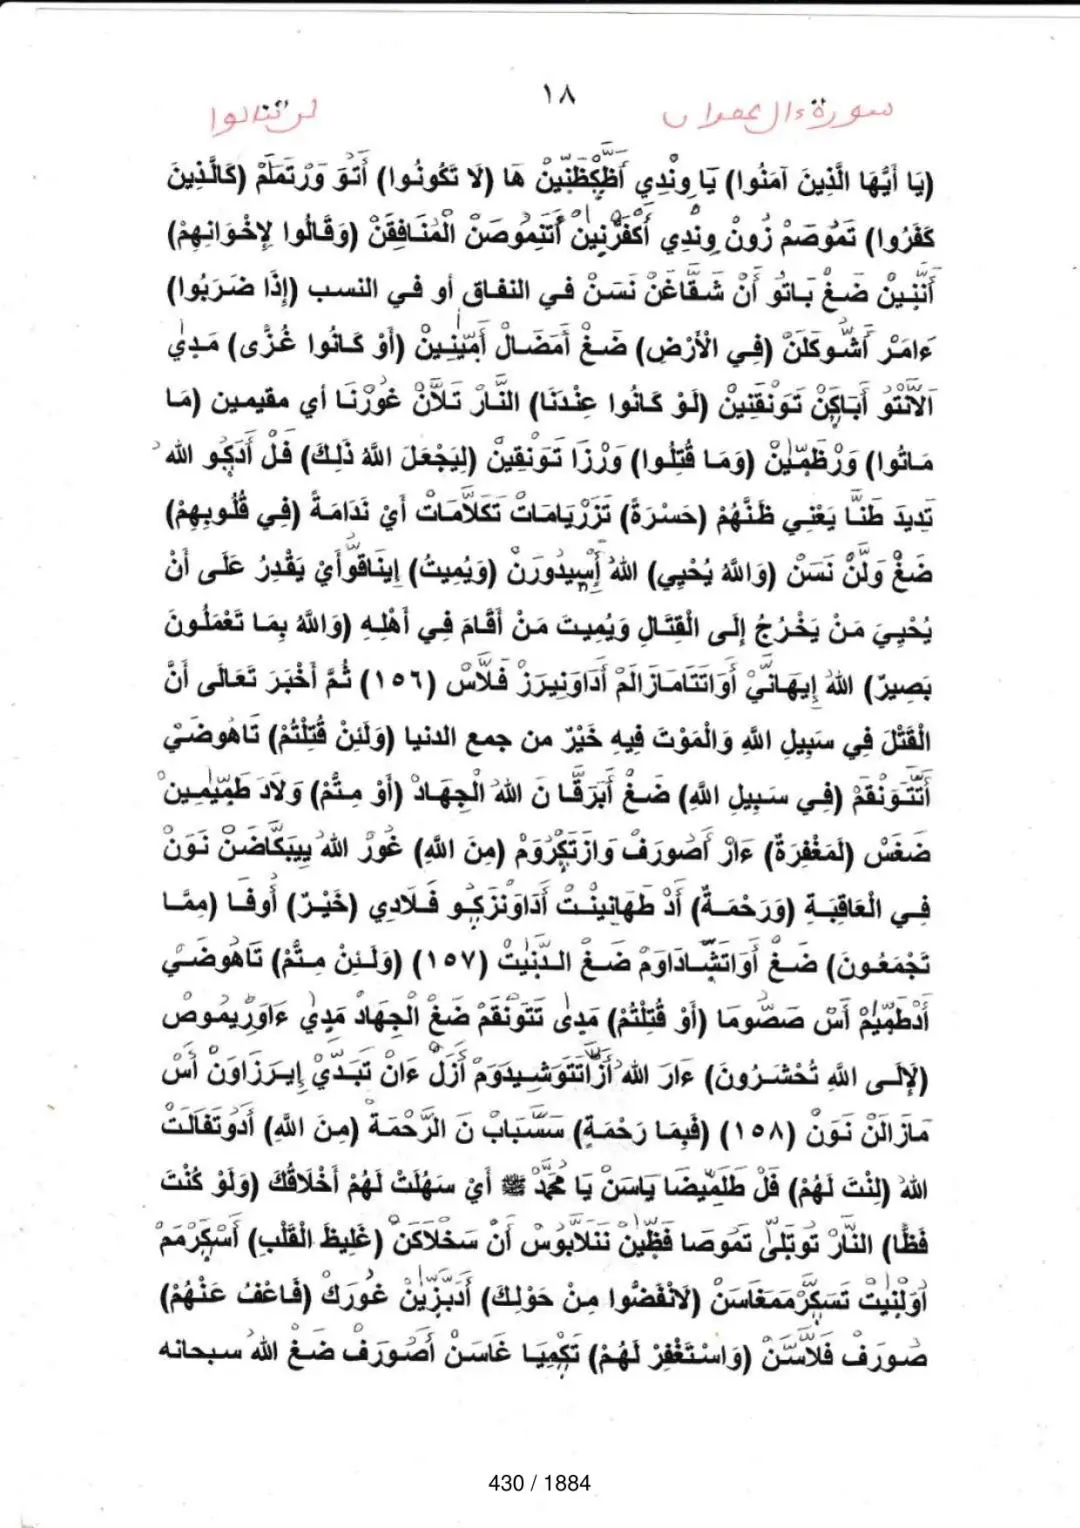 ١٨
سورة ءال عمران
لن تنالوا
(يَا أَيُّهَا الَّذِينَ آمَنُوا) يَا وِنْدِي أَظَّكْظَنِّينْ هَا (لَا تَكُونُوا) أَتَوَ وَرْتَمَلَمْ (كَالَّذِينَ
كَفَرُوا) تَمُوصَمْ زُونْ وِنْدِي أَكْفَرْنِينْ أَتَنِمُوصَنْ الْمُنَافِقَنْ (وَقَالُوا لِإِخْوَانِهِمْ)
أَنَّنِينْ ضَغْ بَاتُو أَنْ شَقَّاغَنْ نَسَنْ في النفاق أو في النسب (إِذَا ضَرَبُوا)
ءَامَرْ أَشُّوكَلَنْ (فِي الْأَرْضِ) ضَغْ أَمَضَالْ أَمِّينِينْ (أَوْ كَانُوا غُزًّى) مَدِي
آلَأَنْتُو أَبَاكِنْ تَوَنْقَنِينْ (لَوْ كَانُوا عِنْدَنَا) النَّارْ تَلَّانْ غُورْنَا أي مقيمين (مَا
مَاتُوا) وَرْظَمِّنِينْ (وَمَا قُتِلُوا) وَرْزَا تَوَنْقِينْ (لِيَجْعَلَ اللَّهُ ذَلِكَ) فَلْ أَدَكِو الله
تَدِيدَ طَنَّا يَعْنِي ظَنَّهُمْ (حَسْرَةً) تَزَرْيَامَاتْ تَكَلَّامَاتْ أَيْ نَدَامَةً (فِي قُلُوبِهِمْ)
ضَغْ وَلَنْ نَسَنْ (وَاللَّهُ يُحْيِي) اللهُ إِسِيدُورَنْ (وَيُمِيتُ) إِينَاقُوأَيْ يَقْدِرُ عَلَى أَنْ
يُحْيِيَ مَنْ يَخْرُجُ إِلَى الْقِتَالِ وَيُمِيتَ مَنْ أَقَامَ فِي أَهْلِهِ (وَاللَّهُ بِمَا تَعْمَلُونَ
بَصِيرٌ) اللهُ إِيهَانَيْ أَوَاتَتَامَازَالَمْ أَدَاوَنِيرَزْ فَلَّاسْ (١٥٦) ثُمَّ أَخْبَرَ تَعَالَى أَنَّ
الْقَتْلَ فِي سَبِيلِ اللَّهِ وَالْمَوْتَ فِيهِ خَيْرٌ من جمع الدنيا (وَلَئِنْ قُتِلْتُمْ) تَاهُوضَيْ
أَتَّتَوَنْقَمْ (فِي سَبِيلِ اللَّهِ) ضَغْ أَبَرَقَّا نَ اللهُ الْجِهَادْ (أَوْ مِتُّمْ) وَلَادَ طَمِّيمِينْ
ضَغَسْ (لَمَغْفِرَةٌ) ءَارْ أَصُورَفْ وَازَتَكْرُومْ (مِنَ اللَّهِ) غُورْ اللهُ يِيبَكَّاضَنْ نَوَنْ
فِي الْعَاقِبَةِ (وَرَحْمَةٌ) أَدْ طَهَانِينْتْ أَدَاوَنْزَكِو فَلَادِي (خَيْرٌ) أُوفَا (مِمَّا
تَجْمَعُونَ) ضَغْ أَوَاتَشَّادَاوَمْ ضَغْ الدِّنْيْتْ (١٥٧) (وَلَئِنْ مِتُّمْ) تَاهُوضَيْ
أَدْطَمِّيمْ أَسْ صَصُّومَا (أَوْ قُتِلْتُمْ) مَدِى تَتَوَنْقَمْ ضَغْ الْجِهَادْ مَدِي ءَاوَرْيِمُوصْ
(لَإِلَى اللَّهِ تُحْشَرُونَ) ءَارَ اللهُ أَزْاتَتَوَشِيدَوَمْ أَزَلْ ءَانْ تَبَدِّيْ إِيرَزَاوَنْ أَسْ
مَازَالَنْ نَوَنْ (١٥٨) (فَبِمَا رَحْمَةٍ) سَسَّبَابْ نَ الرَّحْمَةْ (مِنَ اللَّهِ) أَدُوتَفَالَتْ
اللهُ (لِنْتَ لَهُمْ) فَلْ طَلَمِّيضَا يَاسَنْ يَا مُحَمَّدْ ﷺ أَيْ سَهُلَتْ لَهُمْ أَخْلَاقُكَ (وَلَوْ كُنْتَ
فَظًّا) النَّارْ تُوتَلَّى تَمُوصَا فَظِّينْ نَنَلَّابُوسْ أَنْ سَخْلَاكَنْ (غَلِيظَ الْقَلْبِ) أَسْكِرْمَمْ
أُولْنِيتْ تَسَكِرْمَمَغَاسَنْ (لَانْفَضُّوا مِنْ حَوْلِكَ) أَدَبْزِينْ غُورَكْ (فَاعْفُ عَنْهُمْ)
صُورَفْ فَلَّاسَنْ (وَاسْتَغْفِرْ لَهُمْ) تَكْمِيَا غَاسَنْ أَصُورَفْ ضَغْ اللهُ سبحانه
430 / 1884